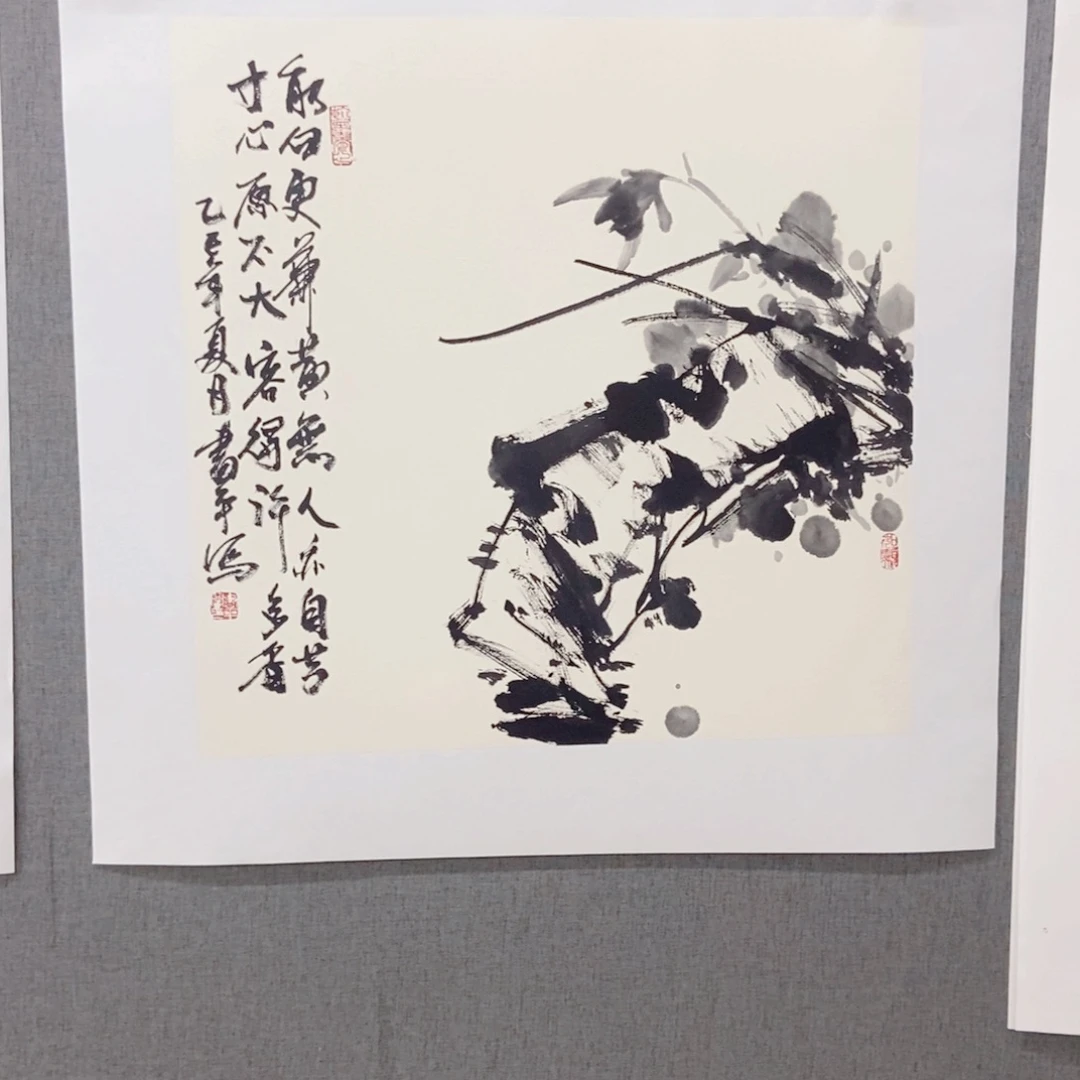 能白更兼黄無人亦自芳
寸心原不大容得許多香
乙巳年夏月書平寫